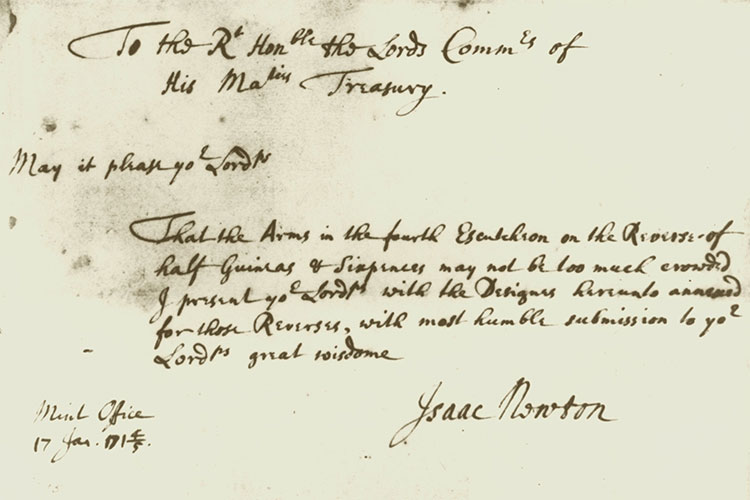 To the Rt Honble the Lords Commrs of
His Maties Treasury.
May it please yor Lordps
That the Arms in the fourth Escutcheon on the Reverse of
half Guineas & Sixpences may not be too much crowded
I present yor Lordps with the Designes hereunto annexed
for those Reverses, with most humble submission to yor
Lordps great wisdome
Isaac Newton
Mint Office
17 Jan. 171 4/5.